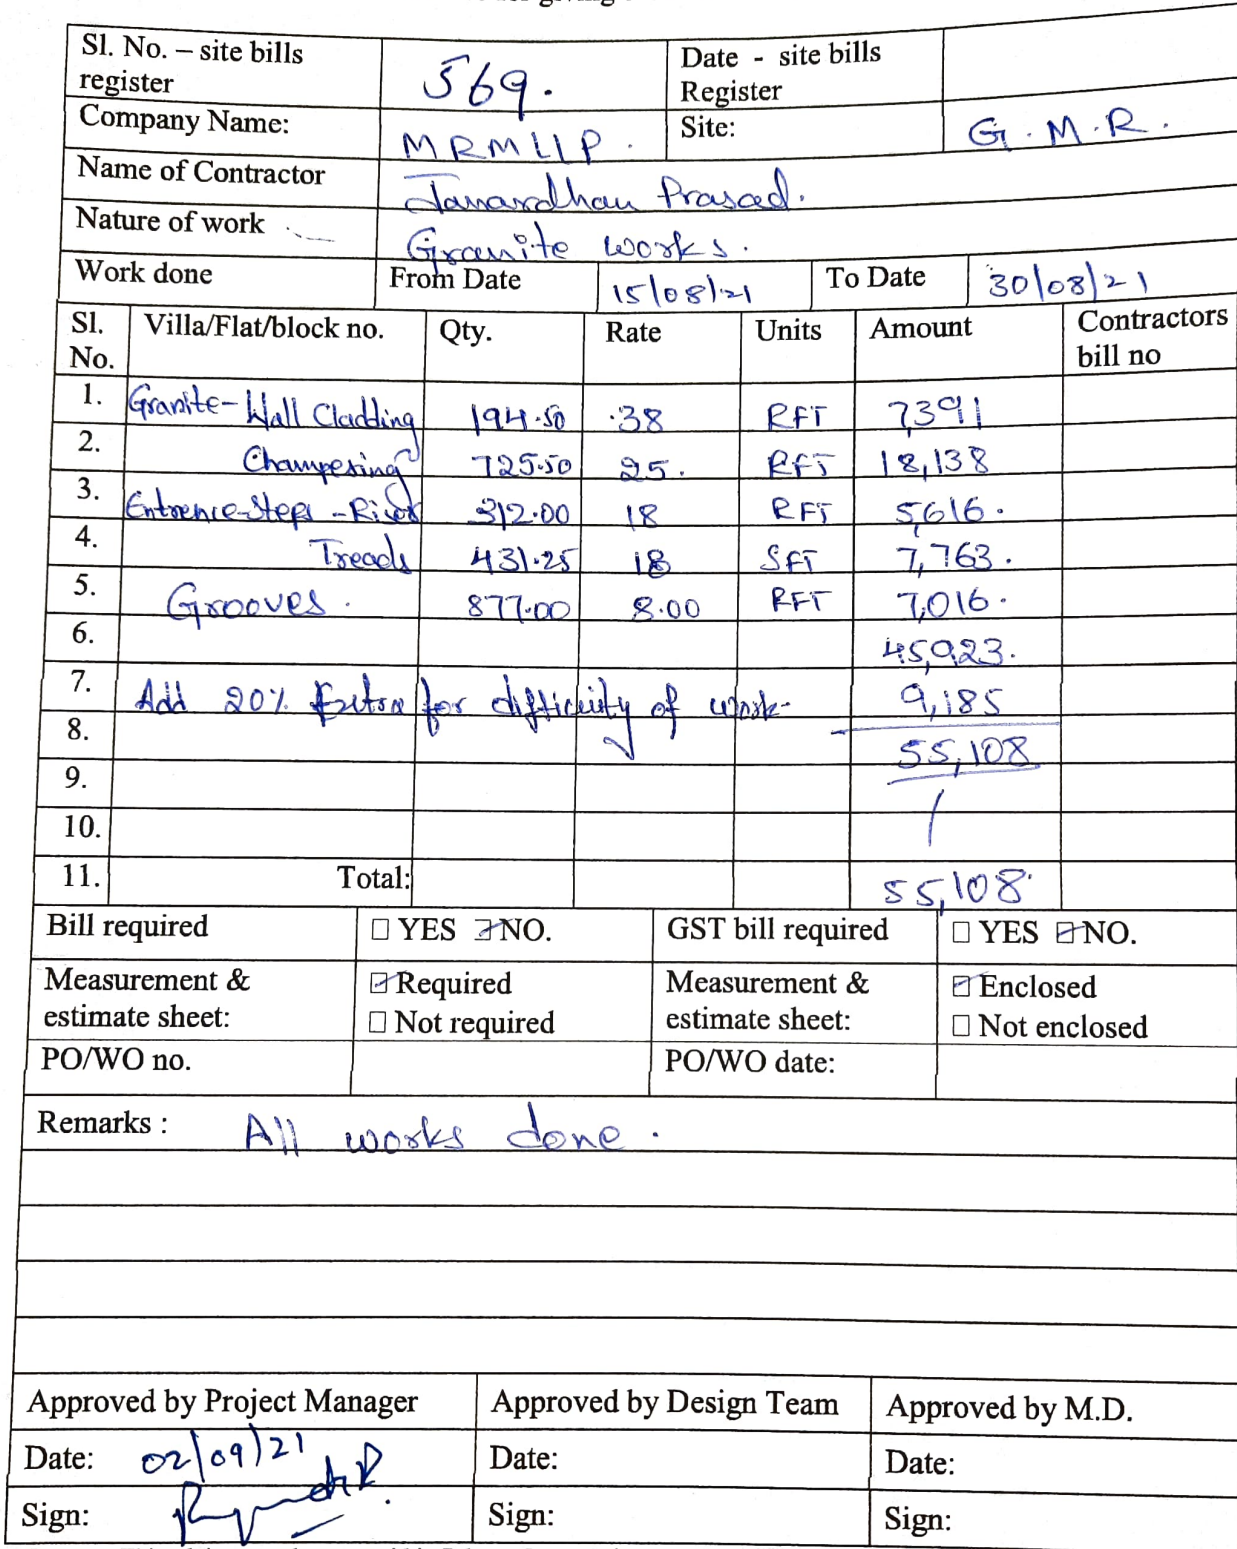 Sl. No. – site bills register 569. Date - site bills Register
Company Name: MRMLLP. Site: G.M.R.
Name of Contractor Janardhan Prasad.
Nature of work Granite works.
Work done From Date 15/08/21 To Date 30/08/21
Sl. No. Villa/Flat/block no. Qty. Rate Units Amount Contractors bill no
1. Granite-Wall Cladding 194.50 .38 RFT 7,391
2. Champering 725.50 25. RFT 18,138
3. Entrence-Steps - 312.00 18 RFT 5,616.
4. Treads 431.25 18 SFT 7,763.
5. Grooves. 877.00 8.00 RFT 7,016.
6. 45,923.
7. Add 20% Extra for difficulty of work- 9,185
8. 55,108
9.
10.
11. Total: 55,108
Bill required ☐ YES ☑ NO. GST bill required ☐ YES ☑ NO.
Measurement & estimate sheet: ☑ Required ☐ Not required Measurement & estimate sheet: ☑ Enclosed ☐ Not enclosed
PO/WO no. PO/WO date:
Remarks : All works done.
Approved by Project Manager Approved by Design Team Approved by M.D.
Date: 02/09/21 Date: Date:
Sign: Sign: Sign: